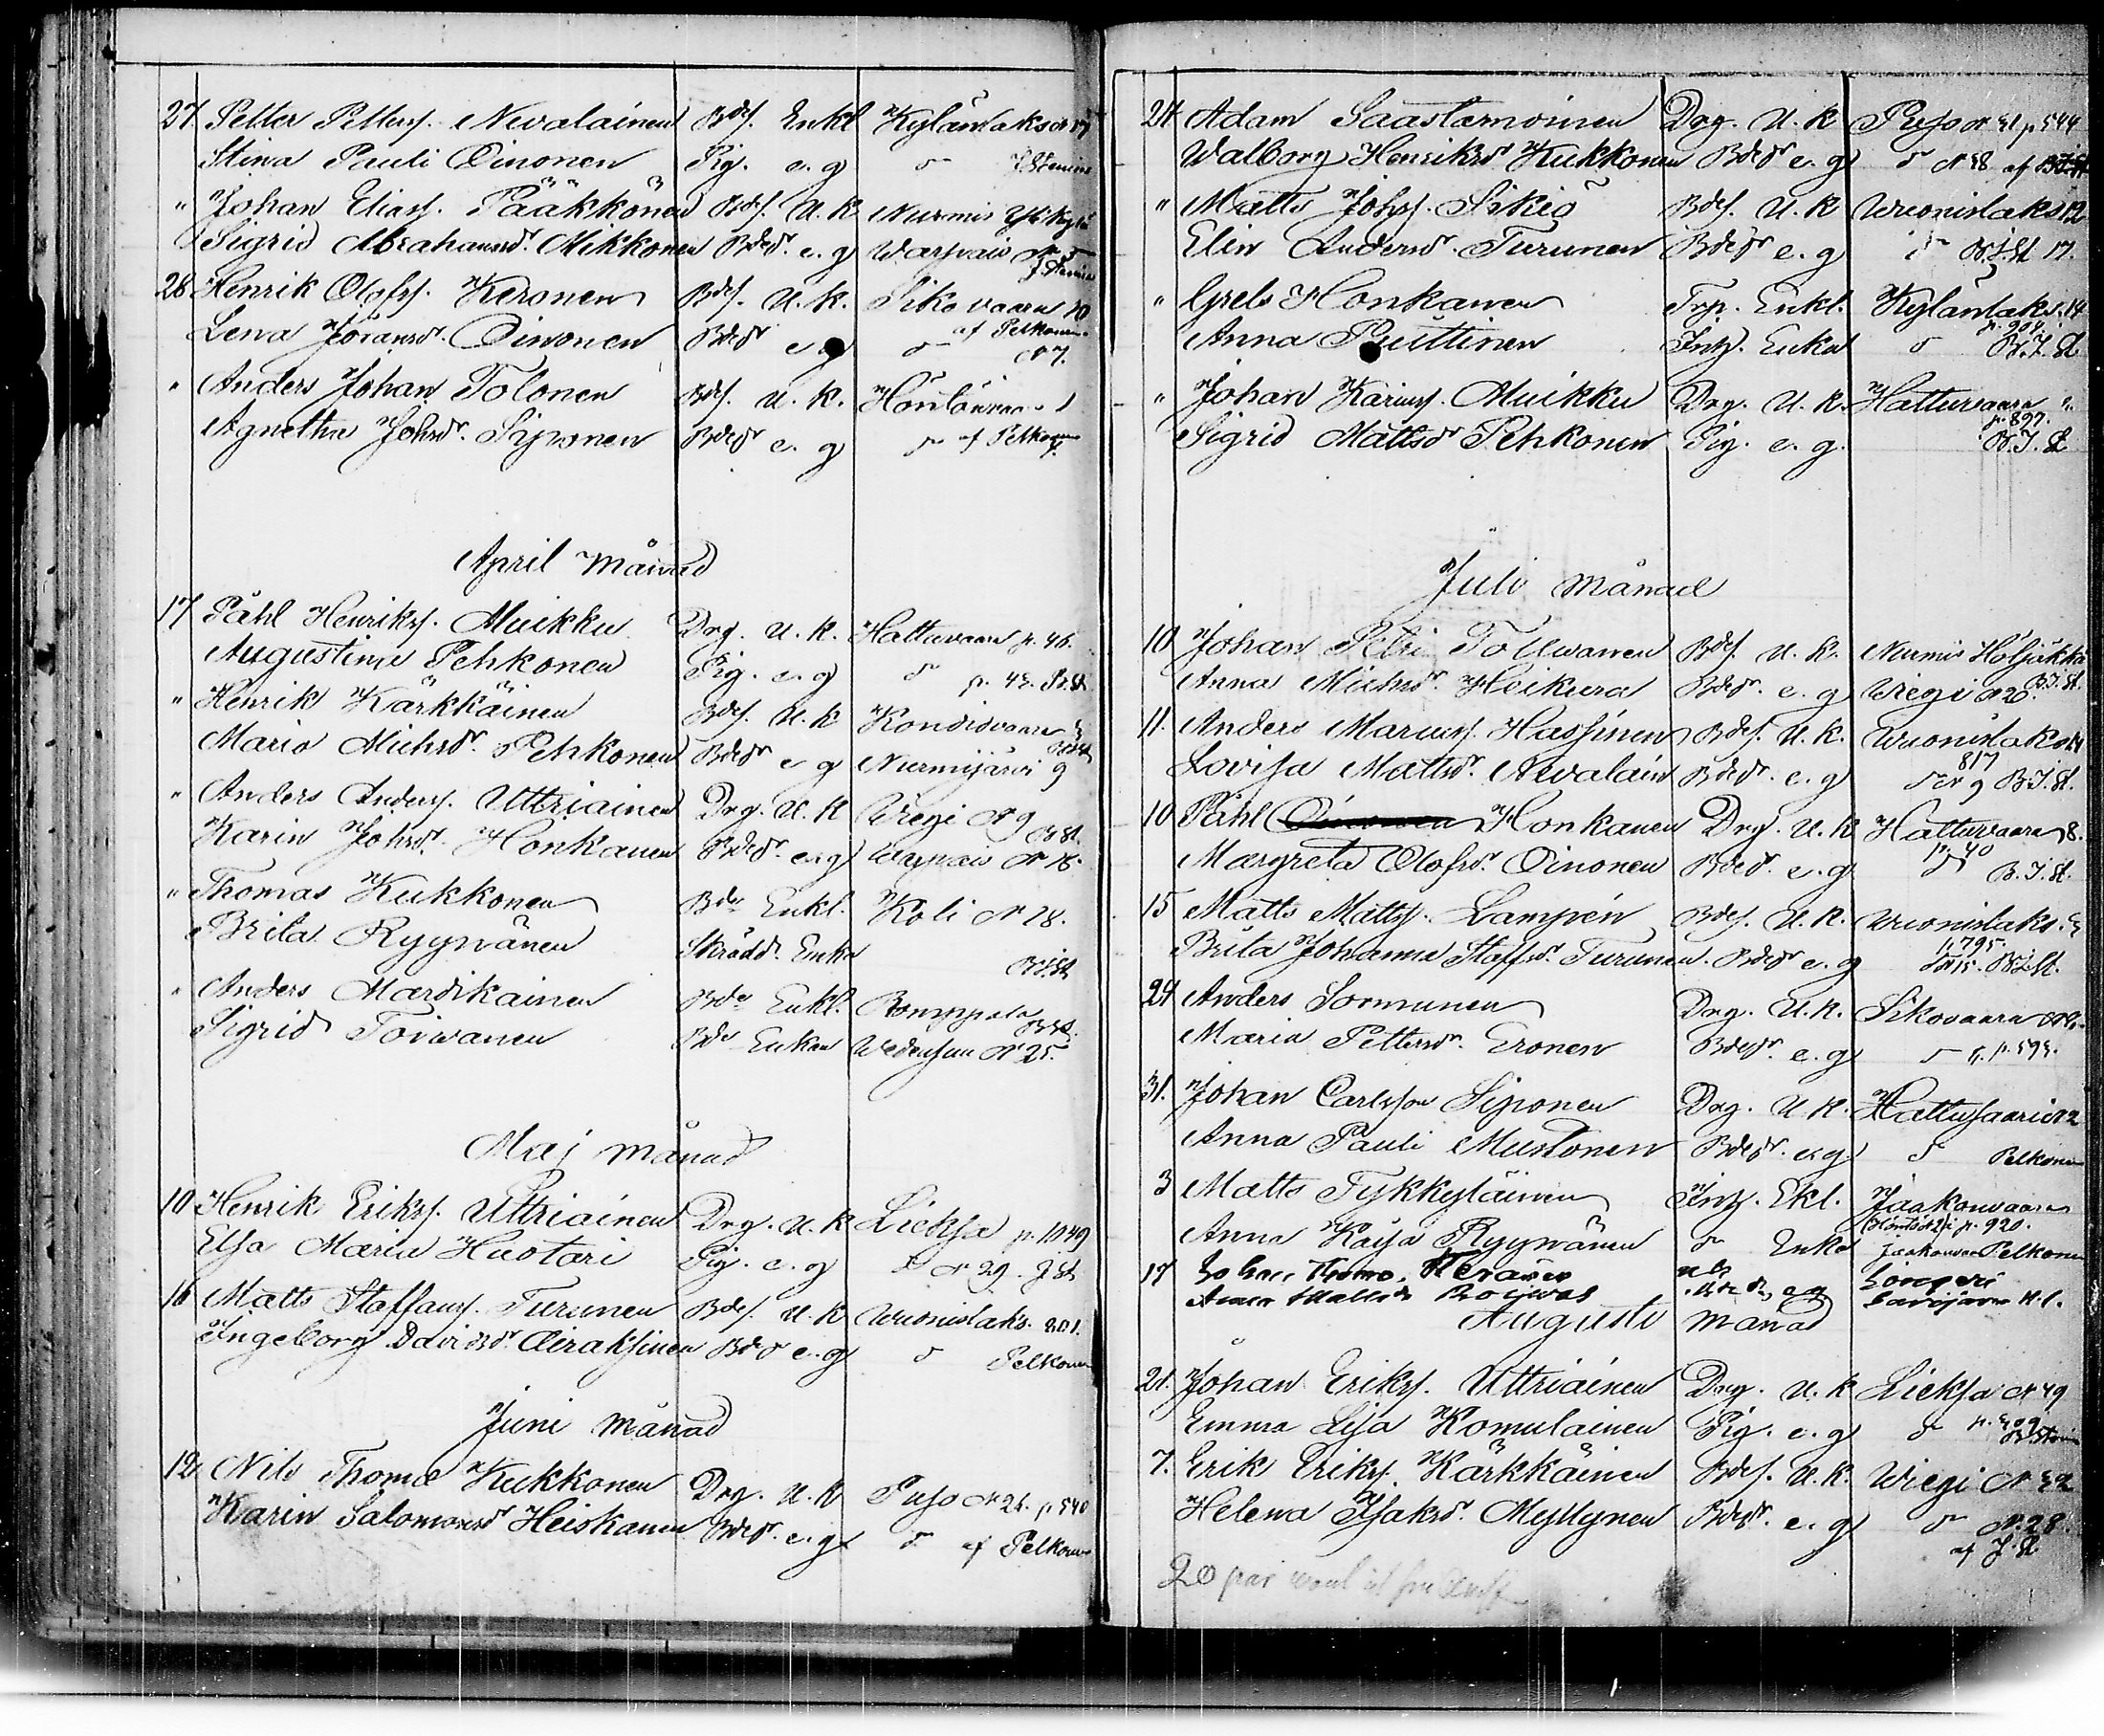 27. Petter Petterss. Nevalainen Bdes. Enkl Kylänlaks N 17
Stina Pauli Oinonen Pig. e. g d:o
" Johan Eliass. Pääkkönen Bdes. U. K Nurmis Ylikylä
Sigrid Abrahamsdr. Mikkonen Bdedr. e. g Warpais N 5
28 Henrik Olofss. Keronen Bdes. U. K. Sikovaara 10
Lena Göransdr. Oinonen Bdedr e g d:o af Pelkonen N 7.
" Anders Johan Tolonen Bdes. U. K. Höntönvaara 1
Agnetha Johsdr. Siponen Bdedr e. g d:o af Pelkonen
April Månad
17 Påhl Henrikss. Muikku Drg. U. K. Hattuvaara p. 46.
Augustina Pehkonen Pig. e. g d:o p. 43.
" Henrik Kärkkäinen Bdes. U. K Kontiovaara
Maria Michsdr. Pehkonen Bdedr e g Nurmijärvi 9
" Anders Anderss. Uttriainen Drg. U. K Wiegi N 9
Karin Johsdr. Honkanen Bdedr. e. g Warpais N 18.
" Thomas Kukkonen Bde Enkl. Koli N 28.
Brita Ryynänen Skrädd. Enka B.I.St.
" Anders Mardikainen Bde Enkl. Romppala
Sigrid Toivanen Bde Enkan Wedensuu N 25.
Maj månad
10 Henrik Erikss. Uttriainen Drg. U. K Lieksa p. 1049
Elsa Maria Huotari Pig. e. g d:o N 29. J. St
16 Matts Staffanss. Turunen Bdes. U. K Wuonislaks. 801.
Ingeborg Davidsdr. Airaksinen Bded e. g d:o Pelkonen
Juni månad
12 Nils Thomæ Kukkonen Drg. U. K Puso N 26. p 540
Karin Salomonsdr Heiskanen Bdedr. e. g d:o af Pelkonen
24 Adam Saastamoinen Drg. U. K Puso N 31 p 544
Walborg Henriksdr Kukkonen Bdedr e. g d:o N 38 af B.I.St
" Matts Johss. Sikiö Bdes. U. K Wuonislaks 12
Elin Andersdr. Turunen Bdedr e. g d:o B.I.St 17.
" Grels Honkanen Trp. Enkl. Kylänlaks. 14
Anna Puittinen Inh. Enka d:o p. 904. B.I.St
" Johan Karinss. Muikku Drg. U. K. Hattuvaara
Sigrid Mattsdr Pehkonen Pig. e. g. p. 897. B.I.St
Juli Månad
10 Johan Petri Tollwanen Bdes. U. K. Nurmis Höljäkkä
Anna Michsdr. Heikura Bdedr. e. g Wiegi N 20. B.I.St.
11. Anders Marcuss. Hassinen Bdes. U. K. Wuonislaks 14
Lovisa Mattsdr. Nevalain Bdedr. e. g 817 d:o N 9 B.I.St.
10 Påhl Oinonen Honkanen Drg. U. K Hattuvaara 8.
Margreta Olofsdr. Oinonen Bded. e. g p. 40 d:o B.I.St.
15 Matts Mattss. Lampén Bdes. U. K. Wuonislaks. 3
Brita Johanna Staffsdr. Turunen. Bdedr e. g p. 795. d:o N 15. B.I.St.
24 Anders Sormunen Drg. U. K. Sikovaara
Maria Pettersdr. Eronen Bdedr. e. g d:o p. 593.
31. Johan Carlsson Siponen Drg. U. K. Hattusaari N 2
Anna Pauli Mustonen Bdedr. e. g d:o Pelkonen
3 Matts Tykkyläinen Inh. Ekl. Jaakonvaara
Anna Kaisa Ryynänen d:o Enka p. 920. Pelkonen
17 Johan Thoms. Keränen
Anna Mattsdr e g N 1.
Augusti månad
21. Johan Erikss. Uttriainen Drg. U. K Lieksa N 49
Emma Lisa Komulainen Pig. e. g d:o p. 309
7. Erik Erikss. Kärkkäinen Bdes. U. K. Wiegi N 32
Helena Isaksdr. Myllynen Bdedr. e. g d:o N. 28. af J. St
20 par